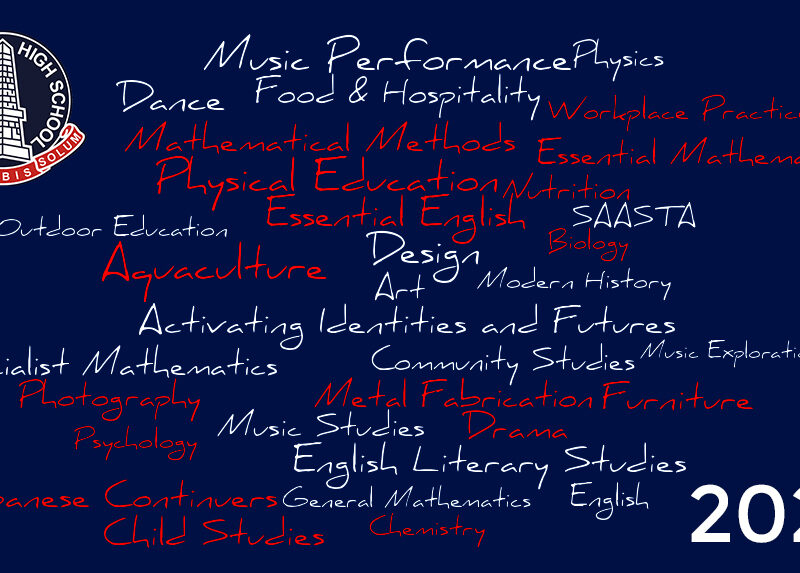 HIGH SCHOOL
BIS SOLUM
Music Performance Physics
Dance Food & Hospitality Workplace Practic
Mathematical Methods Essential Mathem
Physical Education Nutrition
Essential English SAASTA
Outdoor Education Design Biology
Aquaculture Art Modern History
Activating Identities and Futures
cialist Mathematics Community Studies Music Exploratio
Photography Metal Fabrication Furniture
Psychology Music Studies Drama
English Literary Studies
panese Continuers General Mathematics English
Child Studies Chemistry
202